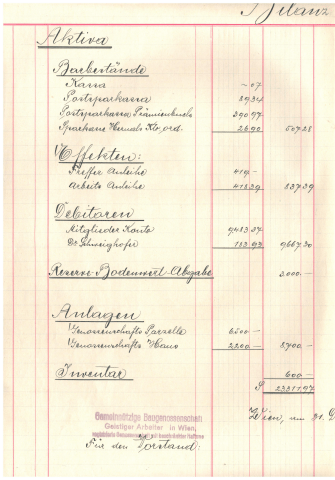 Bilanz
Aktiva
Barbestände
Kassa -.07
Postsparkassa 89.34
Postsparkassa Prämienbuch 390.97
Sparkasse Hernals Kto. ord. 26.90 507.28
Effekten:
Treffer Anleihe 419.-
Arbeits Anleihe 418.39 837.39
Debitoren
Mitglieder Konto 9483.37
Dr. Schweighofer 183.93 9667.30
Reserve Bodenwert-Abgabe 3.000.-
Anlagen
Genossenschafts Parzelle 6500.-
Genossenschafts Haus 2200.- 8700.-
Inventar 600.-
S 23311.97
Wien, am 31. D
Gemeinnützige Baugenossenschaft
Geistiger Arbeiter in Wien,
registrierte Genossenschaft mit beschränkter Haftung
Für den Vorstand: